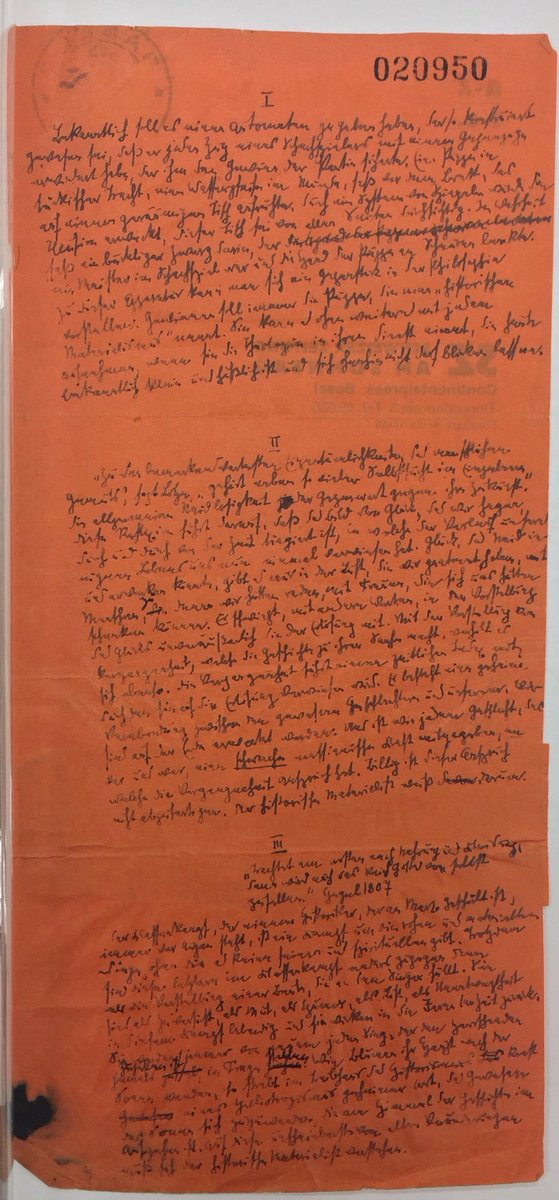 020950
I
Bekanntlich soll es einen Automaten gegeben haben, der so konstruiert
gewesen sei, daß er jeden Zug eines Schachspielers mit einem Gegenzuge
erwidert habe, der ihm den Gewinn der Partie sicherte. Eine Puppe in
türkischer Tracht, eine Wasserpfeife im Munde, saß vor dem Brett, das
auf einem geräumigen Tisch aufruhte. Durch ein System von Spiegeln wurde die
Illusion erweckt, dieser Tisch sei von allen Seiten durchsichtig. In Wahrheit
saß ein buckliger Zwerg darin, der
ein Meister im Schachspiel war und die Hand der Puppe an Schnüren lenkte.
Zu dieser Apparatur kann man sich ein Gegenstück in der Philosophie
vorstellen. Gewinnen soll immer die Puppe, die man „historischen
Materialismus“ nennt. Sie kann es ohne weiteres mit jedem
aufnehmen, wenn sie die Theologie in ihren Dienst nimmt, die heute
bekanntlich klein und häßlich ist und sich ohnehin nicht darf blicken lassen.
II
„Zu den bemerkenswerthesten Eigentümlichkeiten des menschlichen
Gemüts“, sagt Lotze, „gehört neben so vieler Selbstsucht im Einzelnen
die allgemeine Neidlosigkeit der Gegenwart gegen ihre Zukunft.“
Diese Reflexion führt darauf, daß das Bild von Glück, das wir hegen,
durch und durch von der Zeit tingiert ist, in welche der Verlauf unseres
eigenen Lebens uns nun einmal verwiesen hat. Glück, das Neid in
uns erwecken könnte, gibt es nur in der Luft, die wir geatmet haben, mit
Menschen, zu denen wir hätten reden, mit Frauen, die sich uns hätten
schenken können. Es schwingt, mit andern Worten, in der Vorstellung
des Glücks unveräußerlich die der Erlösung mit. Mit der Vorstellung von
Vergangenheit, welche die Geschichte zu ihrer Sache macht, verhält es
sich ebenso. Die Vergangenheit führt einen zeitlichen Index mit,
durch den sie auf die Erlösung verwiesen wird. Es besteht eine geheime
Verabredung zwischen den gewesenen Geschlechtern und unserem. Wir
sind auf der Erde erwartet worden. Uns ist wie jedem Geschlecht, das
vor uns war, eine schwache messianische Kraft mitgegeben, an
welche die Vergangenheit Anspruch hat. Billig ist dieser Anspruch
nicht abzufertigen. Der historische Materialist weiß darum.
III
„Trachtet am ersten nach Nahrung und Kleidung,
dann wird euch das Reich Gottes von selbst
zufallen.“ Hegel 1807
Der Klassenkampf, der einem Historiker, der an Marx geschult ist,
immer vor Augen steht, ist ein Kampf um die rohen und materiellen
Dinge, ohne die es keine feinen und spirituellen gibt. Trotzdem
sind diese letztern im Klassenkampf anders zugegen denn
als die Vorstellung einer Beute, die an den Sieger fällt. Sie
sind als Zuversicht, als Mut, als Humor, als List, als Unentwegtheit
in diesem Kampf lebendig und sie wirken in die Ferne der Zeit zurück.
Sie werden immer von neuem jeden Sieg, der den Herrschenden
jemals zugefallen ist, in Frage stellen. Wie Blumen ihr Haupt nach der
Sonne wenden, so strebt
kraft eines Heliotropismus geheimer Art, das Gewesene
der Sonne sich zuzuwenden, die am Himmel der Geschichte im
Aufgehen ist. Auf diese unscheinbarste von allen Veränderungen
muß sich der historische Materialist verstehen.